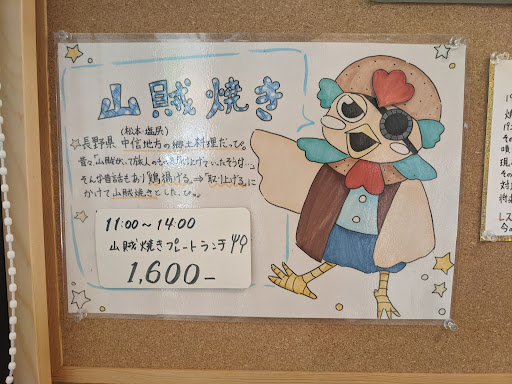 山賊焼き
(松本・塩尻)
長野県 中信地方の郷土料理だっぴ。
昔々「山賊がいて旅人のものを取り上げていたそうな…」
そんな昔話もあり「鶏揚げる」⇒「取り上げる」に
かけて山賊焼きとしたっぴ。
11:00~14:00
山賊焼きプレートランチ
1,600-